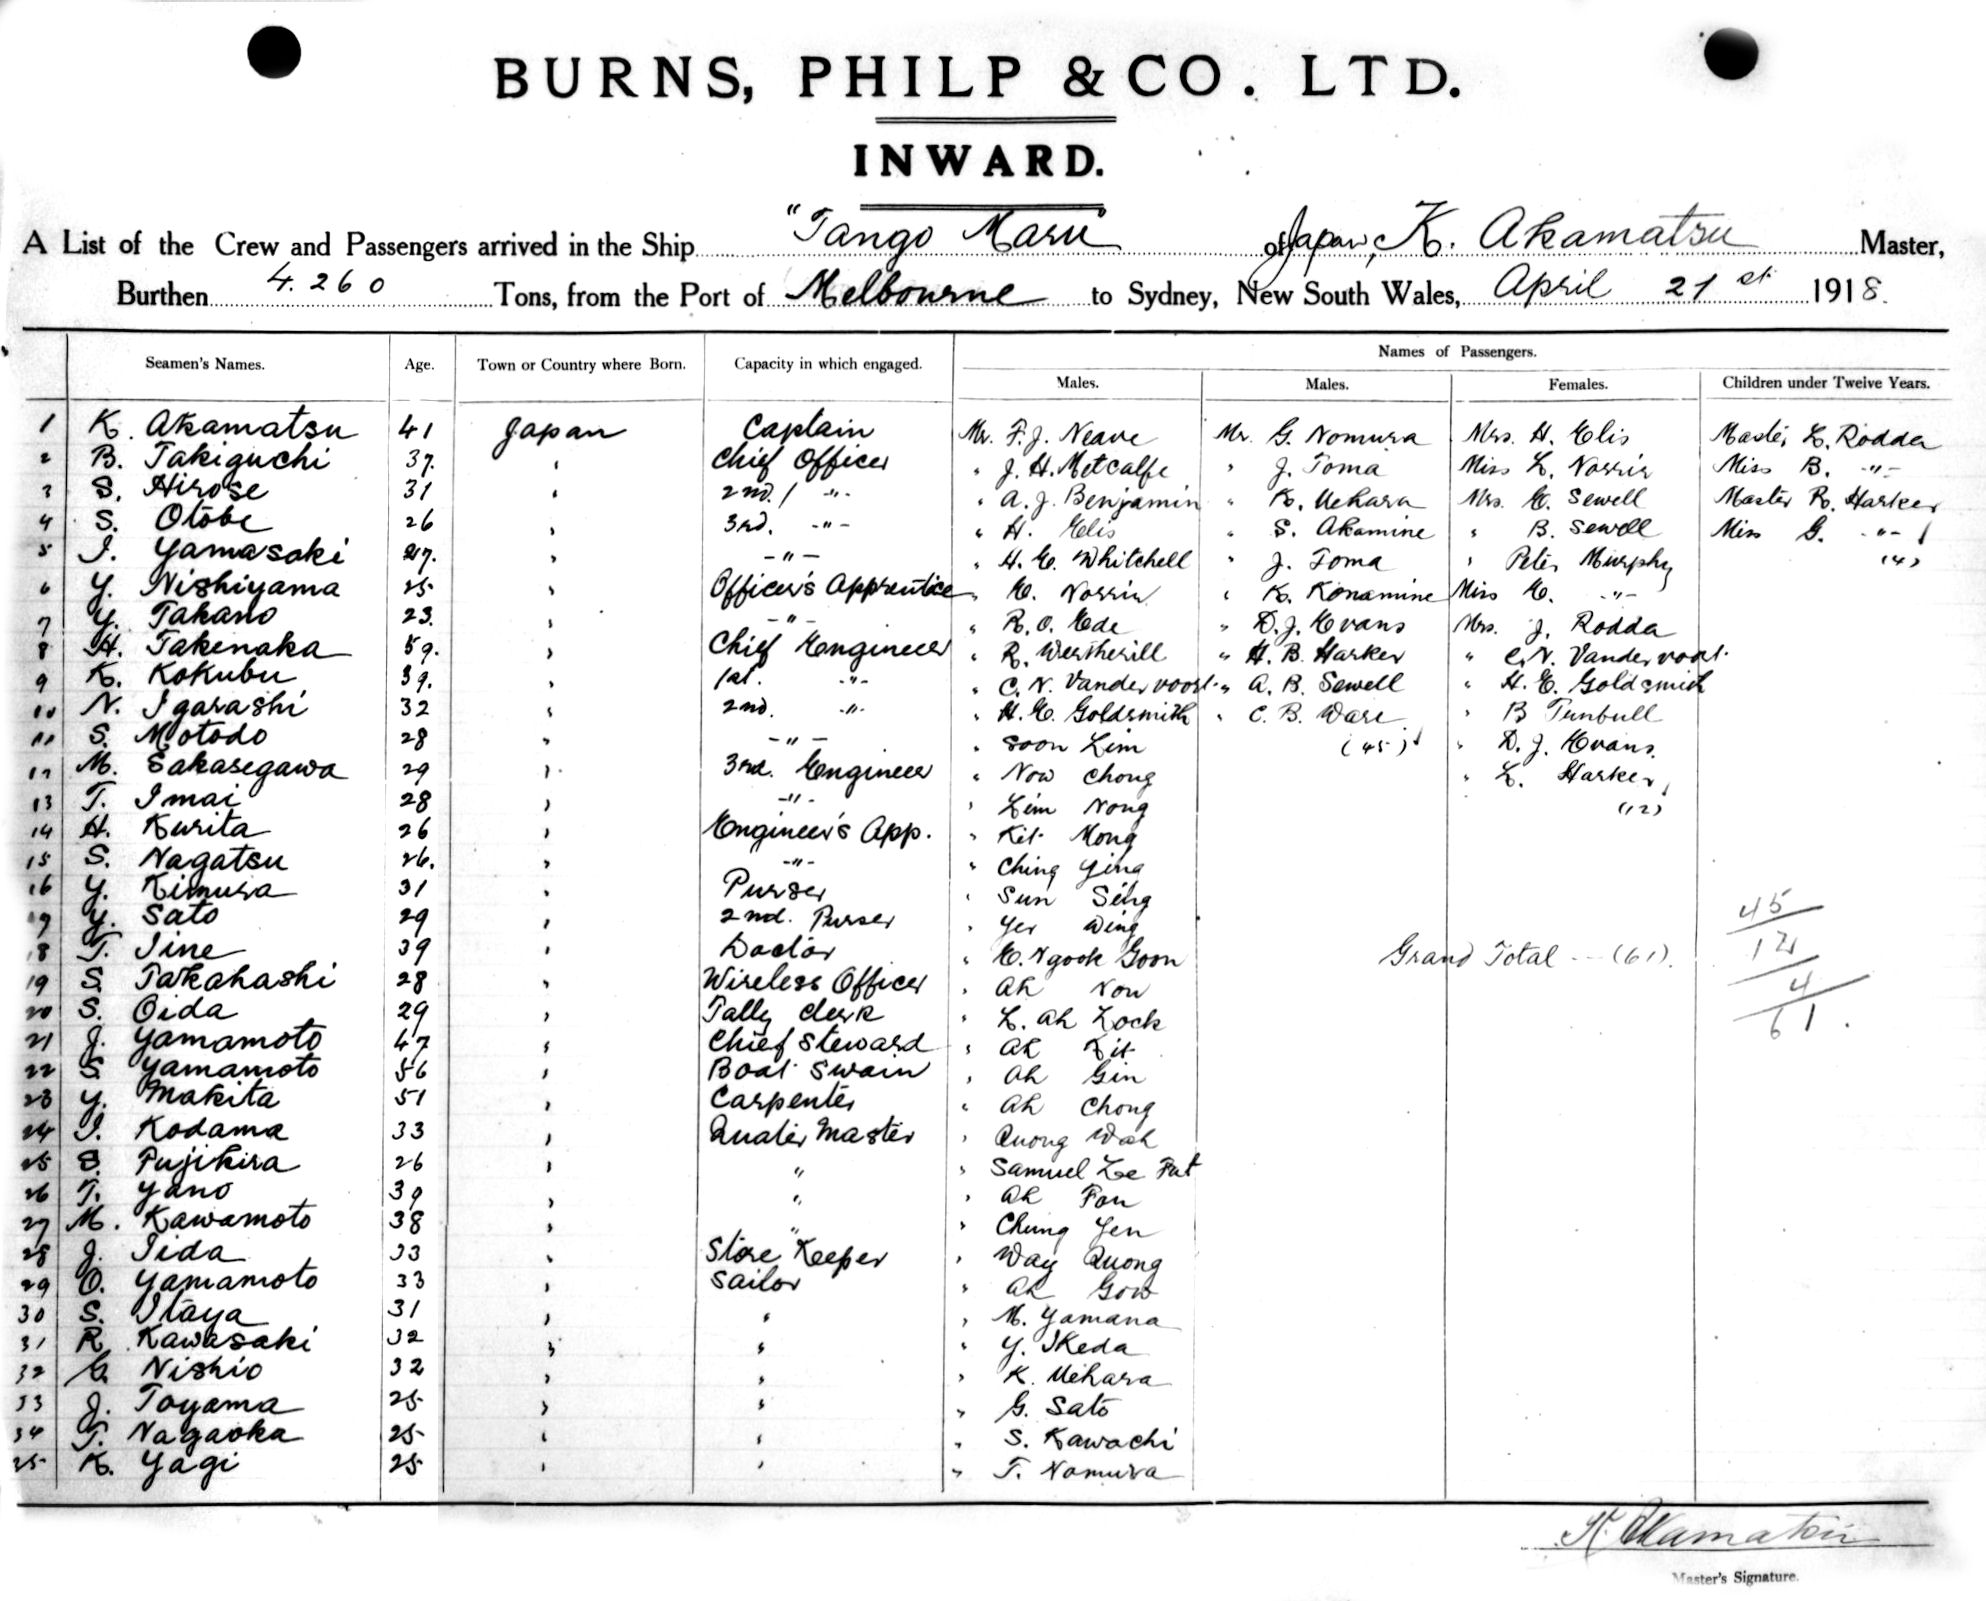 BURNS, PHILP & CO. LTD.
INWARD.
A List of the Crew and Passengers arrived in the Ship "Tango Maru" of Japan, K. Akamatsu Master,
Burthen 4.260 Tons, from the Port of Melbourne to Sydney, New South Wales, April 21st 1918.
Seamen's Names. Age. Town or Country where Born. Capacity in which engaged. Names of Passengers.
Males. Males. Females. Children under Twelve Years.
1 K. Akamatsu 41 Japan Captain Mr. F. J. Neave Mr. G. Nomura Mrs. H. Elis Master L. Rodda
2 B. Takiguchi 37. " Chief Officer " J. H. Metcalfe " J. Toma Miss L. Norris Miss B. -"-
3 S. Hirose 31 " 2nd. -"- " A. J. Benjamin " K. Uehara Mrs. E. Sewell Master R. Harker
4 S. Otobe 26 " 3rd. -"- " H. Elis " S. Akamine " B. Sewell Miss G. -"-
5 I. Yamasaki 27. " -"- " H. E. Whitchell " J. Toma " Peter Murphy (4)
6 Y. Nishiyama 25 " Officer's Apprentice " E. Norris " K. Konamine Miss E. -"-
7 Y. Takano 23. " -"- " R. O. Ede " D. J. Evans Mrs. J. Rodda
8 H. Takenaka 59. " Chief Engineer " R. Wertherill " H. B. Harker " C. N. Vandervoort.
9 K. Kokubu 39. " 1st. -"- " C. N. Vandervoort " A. B. Sewell " H. E. Goldsmith
10 N. Igarashi 32 " 2nd. -"- " H. E. Goldsmith " C. B. Ware " B Turnbull
11 S. Motodo 28 " -"- " Soon Lim (45) " D. J. Evans.
12 M. Sakasegawa 29 " 3rd. Engineer " Now Chong " L. Harker,
13 T. Imai 28 " -"- " Lim Nong (12)
14 H. Kurita 26 " Engineer's App. " Kit Mong
15 S. Nagatsu 26. " -"- " Ching Ying
16 Y. Kimura 31 " Purser " Sun Sing 45
17 Y. Sato 29 " 2nd. Purser " Yer Wing
18 T. Iine 39 " Doctor " E. Ngook Goon Grand Total --- (61). 12
19 S. Takahashi 28 " Wireless Officer " Ah Now 4
20 S. Oida 29 " Tally Clerk " L. Ah Lock 61.
21 J. Yamamoto 47 " Chief Steward " Ah Kit
22 S. Yamamoto 56 " Boat Swain " Ah Gin
23 Y. Makita 51 " Carpenter " Ah Chong
24 I. Kodama 33 " Quater Master " Quong Wah
25 S. Fujihira 26 " " " Samuel Lee Fat
26 T. Yano 39 " " " Ah Fon
27 M. Kawamoto 38 " " " Chung Yen
28 J. Iida 33 " Store Keeper " Way Quong
29 O. Yamamoto 33 " Sailor " Ah Gow
30 S. Itaya 31 " " " M. Yamana
31 R. Kawasaki 32 " " " Y. Ikeda
32 G. Nishio 32 " " " K. Uehara
33 J. Toyama 25 " " " G. Sato
34 T. Nagaoka 25 " " " S. Kawachi
35 K. Yagi 25 " " " T. Nomura
K. Akamatsu
Master's Signature.